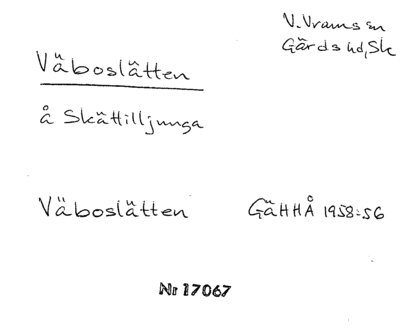 V. Vrams sn
Gärds hd, Sk
Väboslätten
å Skättilljunga
Väboslätten GÄHHÅ 1958:56
Nr 17067